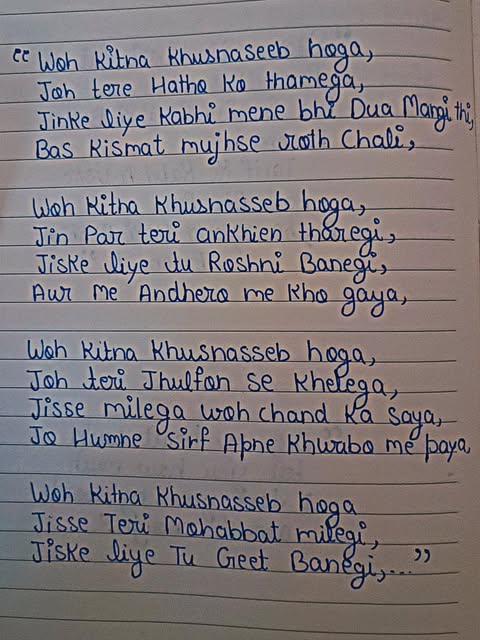 “Woh kitna khusnaseeb hoga,
Joh tere Hatho ko thamega,
Jinke liye kabhi mene bhi Dua Mangi thi,
Bas kismat mujhse roth chali,
Woh kitna khusnasseb hoga,
Jin Par teri ankhien tharegi,
Jiske liye tu Roshni Banegi,
Aur me Andhero me kho gaya,
Woh kitna khusnasseb hoga,
Joh teri Jhulfon se khelega,
Jisse milega woh chand ka saya,
Jo Humne sirf Apne khwabo me paya
Woh kitna khusnasseb hoga
Jisse Teri Mohabbat milegi,
Jiske liye Tu Geet Banegi,...”